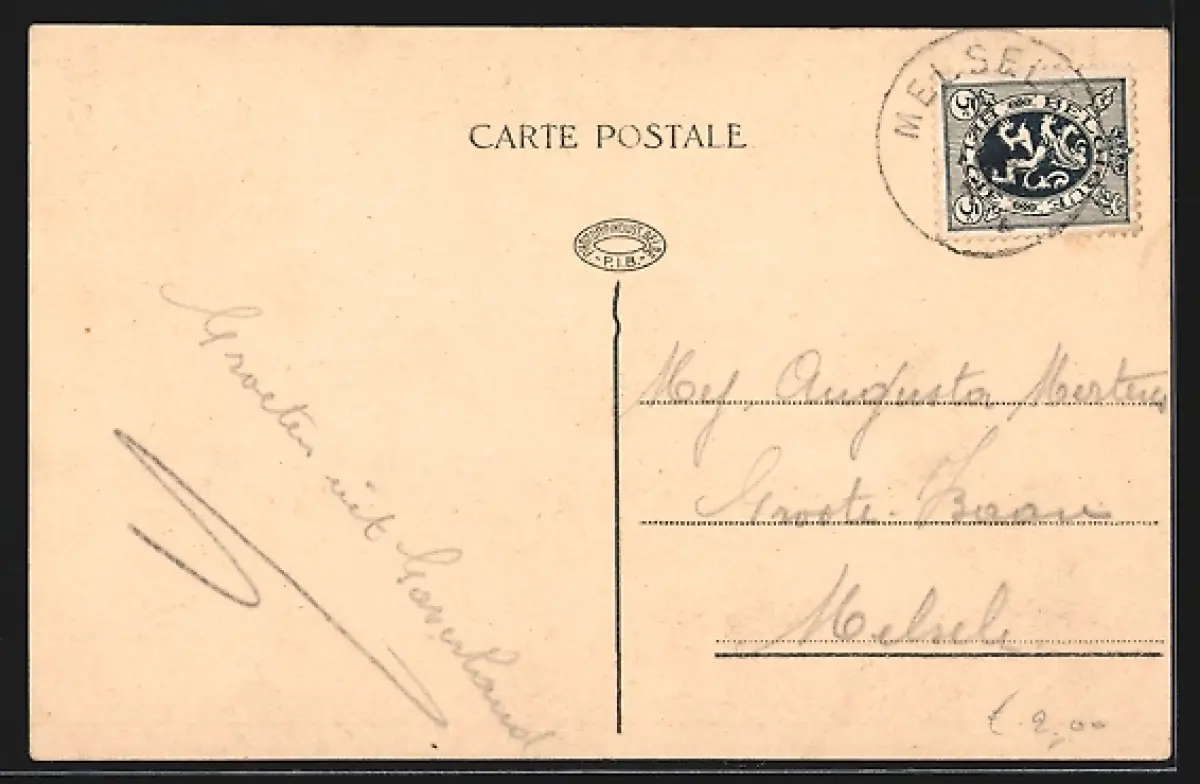 CARTE POSTALE
MELSEL
5 BELGIQUE
BELGIË 5
P.I.B.
Groeten uit
Mej. Augusta Mertens
Groote Baan
Melsele
€ 2,00